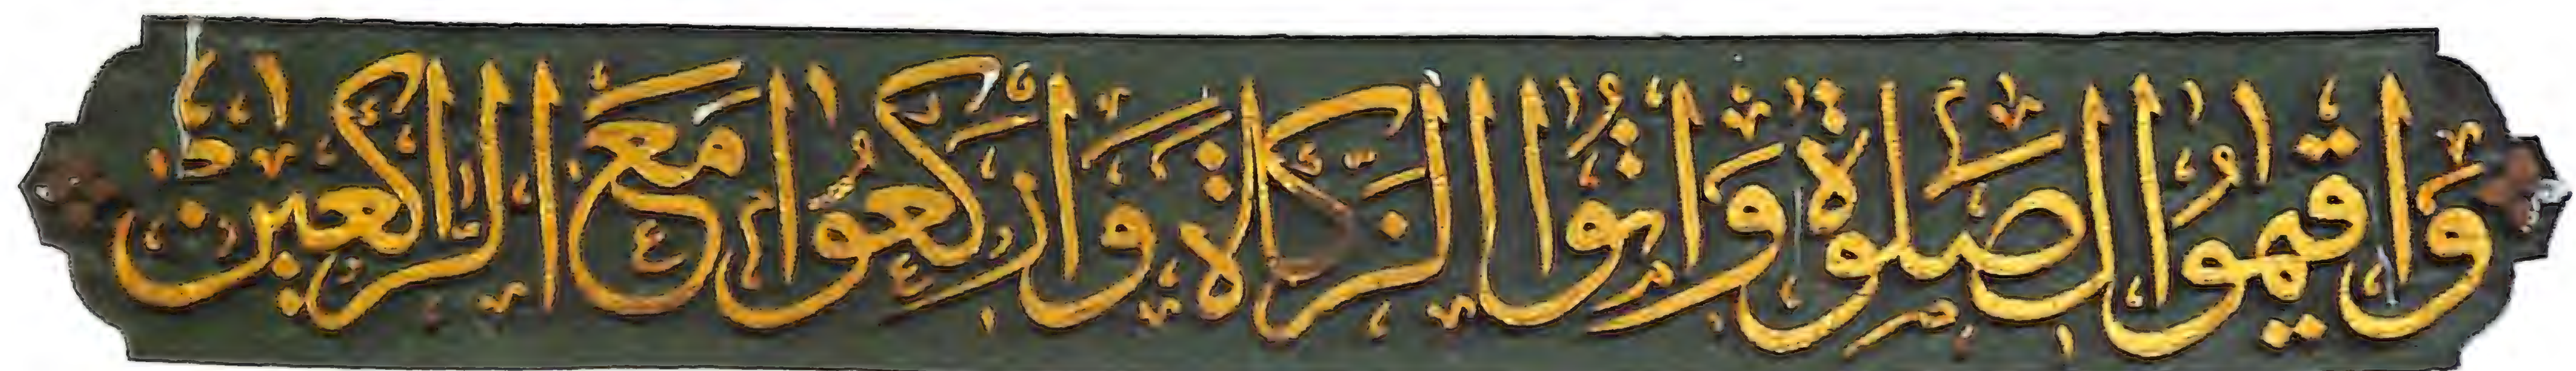 وَاَقِيمُوا الصَّلٰوةَ وَاٰتُوا الزَّكَاةَ وَارْكَعُوا مَعَ الرَّاكِعِينَ